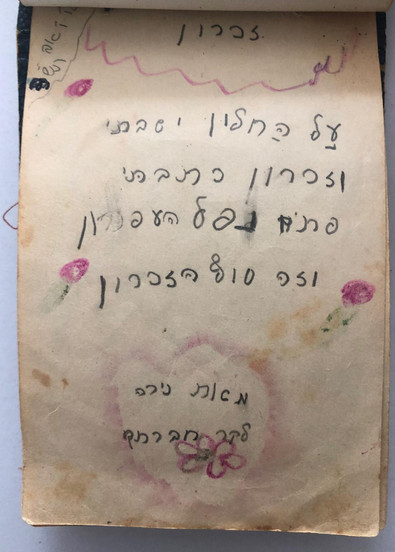 זכרון
עַל הַחלון ישבתי
וזכרון כתבתי
פתאם נפל העפרון
וזה סוף הזכרון
מאת נירה